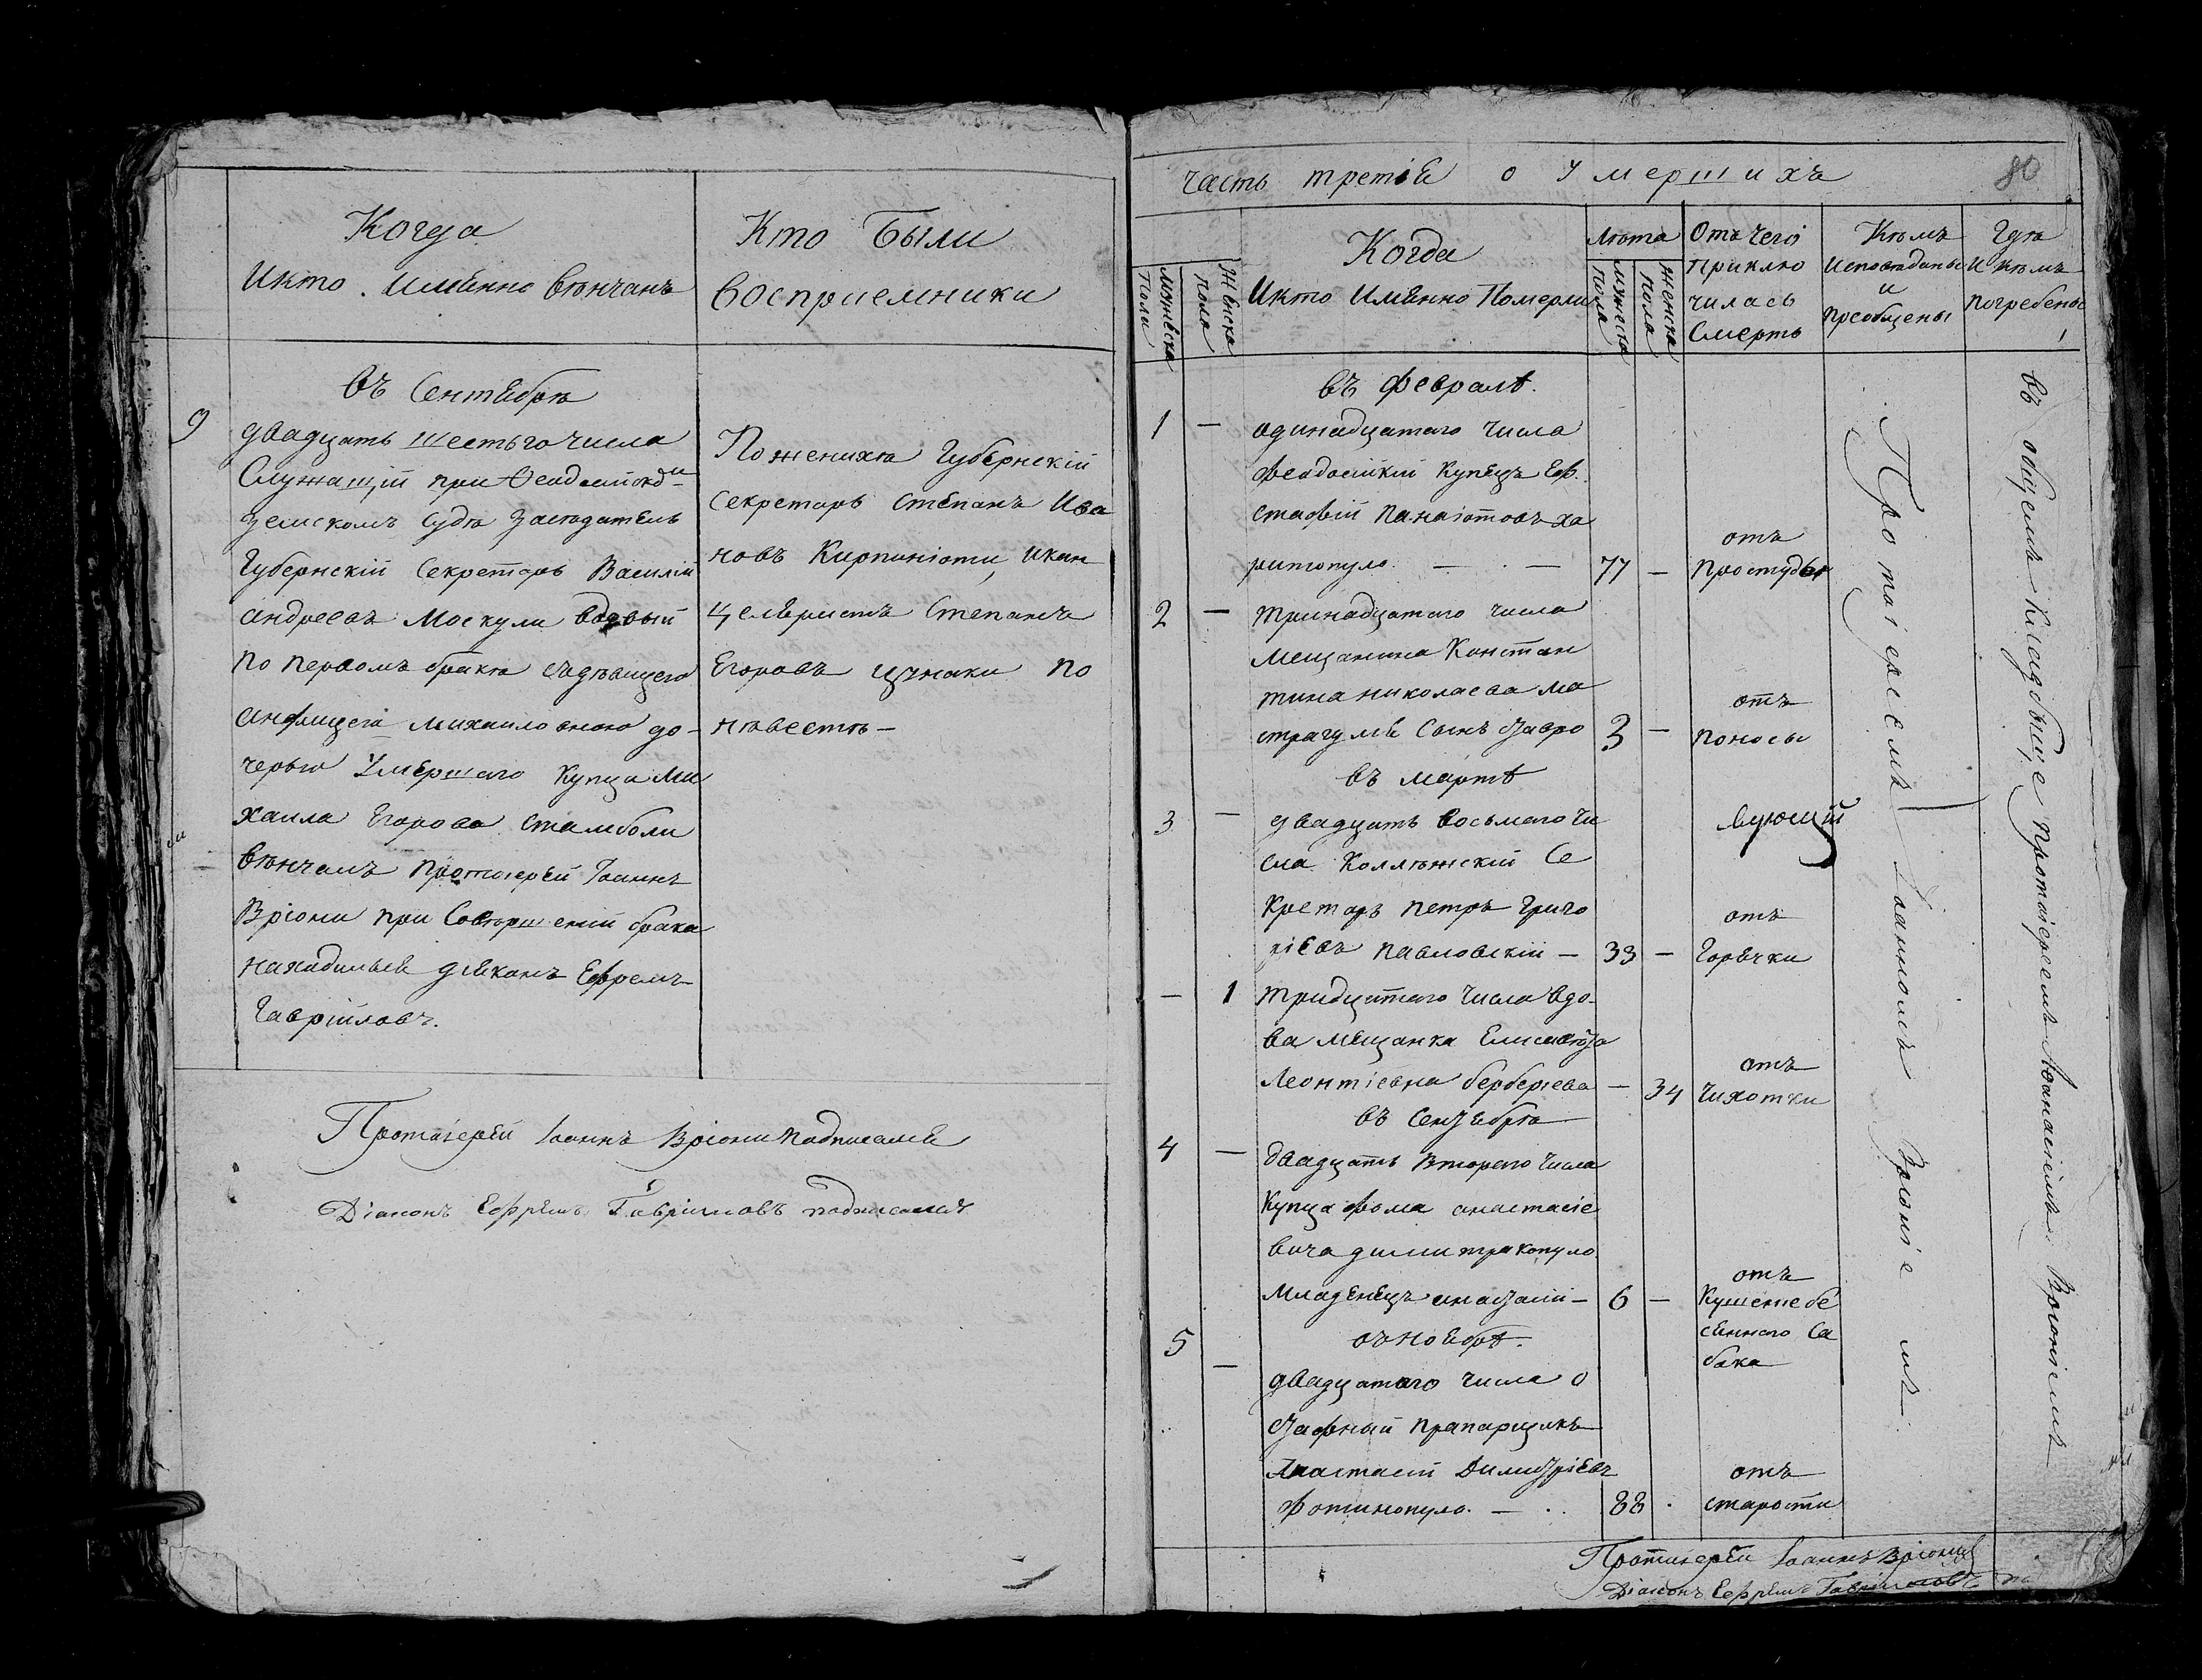 Когда
Икто. Имѣнно Вѣнчанъ
Кто Были
Восприемники
въ Сентебрѣ
9
двадцать шестьго числа
Служащій при
земскомъ Судѣ Заседатель
Губернскій Секретарь Василій
андреевъ Москули вдовый
по первомъ бракѣ
михаиловною до-
черью Умершаго Купца Ми
хаила Егорова Стамболи
Вѣнчалъ Протоіерей Іоаннъ
Вріони при Совершеній брака
находильсе дѣеконъ Ефремъ
Гавріиловъ.
По женихѣ Губернскій
Секретарь Степанъ Ива
новъ Кирпиніоти, икан
целяристъ Степанъ
Егоровъ Цунаки по
нѣвестѣ-
Протоіерей Іоаннъ Вріони подписалсе
Діаконъ Ефремъ Гавриловъ подписался
часть третіе о Умершихъ
80
мужеска пола
Женска пола
Когда
Икто Имѣнно Померли
Лѣта
мужеска пола
женска пола
Отъ Чего
приклю
чилась
Смерть
Кѣмъ
Исповѣданы
и
преобщены
Гдѣ
И кѣмъ
погребены
въ февралѣ.
1 - одинадцатаго числа
феодосійкій купецъ Еф.
стафій Панаіотовъ ха
ритопуло. - . - 77 - отъ простуды
2 - тринадцатаго числа
мещанина Констан
тина николаева ма
страгуле Сынъ Мавро 3 - отъ поносы
въ мартѣ
3 - двадцать восьмаго чи
сла Коллѣжскій Се
кретарь петръ григо
ріевъ павловскій - 33 - отъ Горѣчки
- 1 тридцатаго числа вдо-
ва мѣщанка Елисавета
Леонтіевна берберіева - 34 отъ Чихотки
въ Сентебрѣ
4 - двадцать втораго числа
купца фома анастасіе
вича димитракопуло
младенецъ анастасій - 6 - отъ
Кушение бе
сѣнного Са
бака
5 - ноебрѣ.
двадцатаго числа о
ставный прапарщикъ
Анастасій Димитріевъ
фотинопуло. - . . 88 . отъ старости
Протоіереемъ Іоанномъ Вріоніемъ.
въ общемъ Кладбище протоіереемъ Вріоніемъ
Протоиерей Іоаннъ Вріони
Діаконъ Ефремъ Гавриловъ